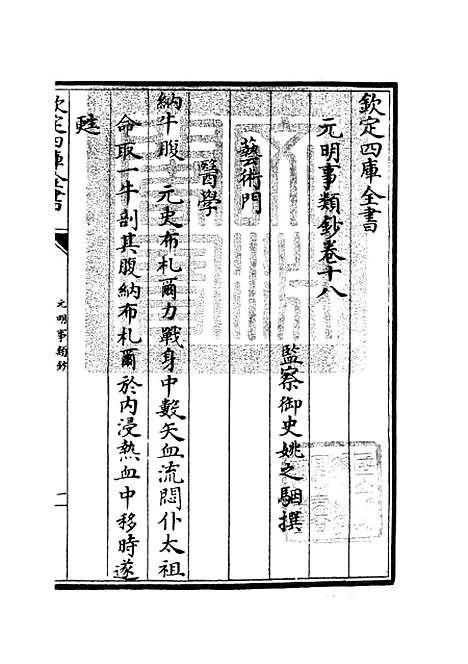 欽定四庫全書
元明事類鈔卷十八
監察御史姚之駰撰
藝術門
醫學
納牛腹 元史布札爾力戰身中數矢血流悶仆太祖
命取一牛剖其腹納布札爾於内浸熱血中移時遂
甦
欽定四庫全書
元明事類鈔